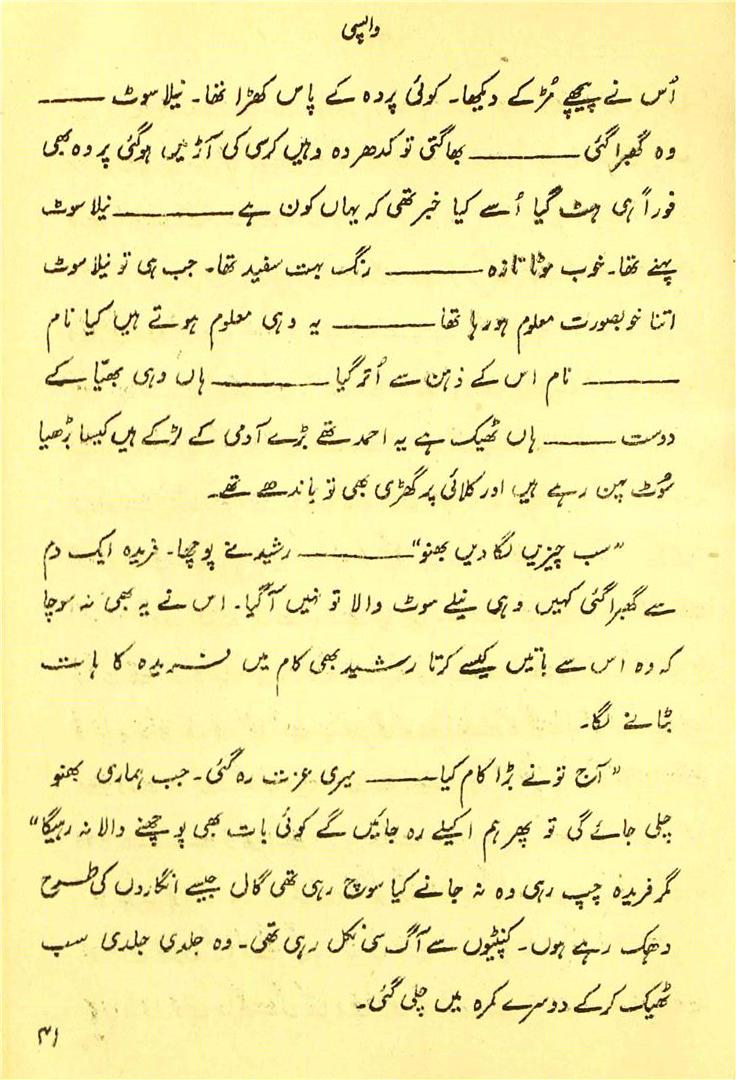 واپسی
اُس نے پیچھے مُڑ کے دیکھا۔ کوئی پردہ کے پاس کھڑا تھا۔ نیلا سوٹ ——
وہ گھبرا گئی —— بھاگتی تو کدھر وہ وہیں کرسی کی آڑ میں ہوگئی پردہ بھی
فوراً ہی ہٹ گیا اُسے کیا خبر تھی کہ یہاں کون ہے —— نیلا سوٹ
پہنے تھا۔ خوب موٹا تازہ —— رنگ بہت سفید تھا۔ جب ہی تو نیلا سوٹ
اتنا خوبصورت معلوم ہو رہا تھا —— یہ وہی معلوم ہوتے ہیں کیا نام
—— نام اس کے ذہن سے اُتر گیا —— ہاں وہی بھیّا کے
دوست —— ہاں ٹھیک ہے یہ احمد تھے بڑے آدمی کے لڑکے ہیں کیسا بڑھیا
سُوٹ پہن رہے ہیں اور کلائی پر گھڑی بھی تو باندھے تھے۔
”سب چیزیں لگا دیں بھنو“ —— رشید نے پوچھا۔ فریدہ ایک دم
سے گھبرا گئی کہیں وہی نیلے سوٹ والا تو نہیں آگیا۔ اس نے یہ بھی نہ سوچا
کہ وہ اس سے باتیں کیسے کرتا رشید بھی کام میں فریدہ کا ہات
بٹانے لگا۔
”آج تونے بڑا کام کیا —— میری عزت رہ گئی۔ جب ہماری بھنو
چلی جائے گی تو پھر ہم اکیلے رہ جائیں گے کوئی بات بھی پوچھنے والا نہ رہیگا“
مگر فریدہ چپ رہی وہ نہ جانے کیا سوچ رہی تھی گال جیسے انگاروں کی طرح
دھک رہے ہوں۔ کنپٹیوں سے آگ سی نکل رہی تھی۔ وہ جلدی جلدی سب
ٹھیک کرکے دوسرے کمرہ میں چلی گئی۔
۳۱